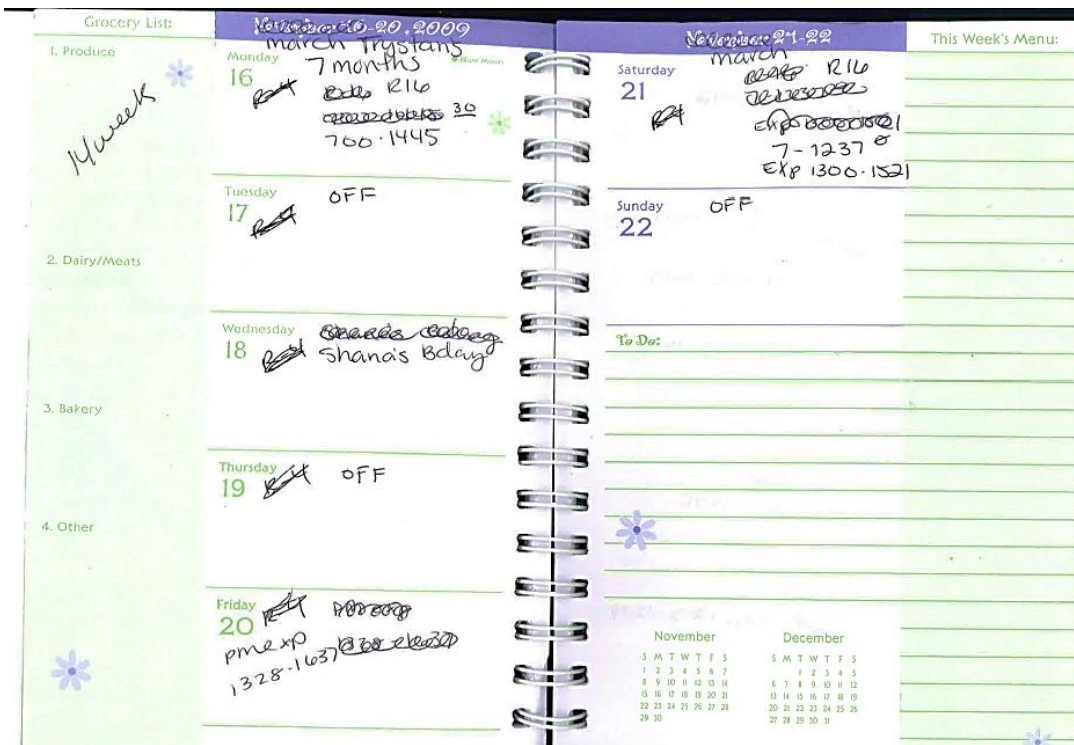 Grocery List:
1. Produce
14 week
2. Dairy/Meats
3. Bakery
4. Other
20, 2009
march Trystans
Monday
16
New Moon
7 months
R16
30
700-1445
Tuesday
17
OFF
Wednesday
18
Shana's Bday
Thursday
19
OFF
Friday
20
pm exp
1328-1637
21-22
march
Saturday
21
R16
7-1237
Exp 1300-1521
Sunday
22
OFF
To Do:
November
S M T W T F S
1 2 3 4 5 6 7
8 9 10 11 12 13 14
15 16 17 18 19 20 21
22 23 24 25 26 27 28
29 30
December
S M T W T F S
1 2 3 4 5
6 7 8 9 10 11 12
13 14 15 16 17 18 19
20 21 22 23 24 25 26
27 28 29 30 31
This Week's Menu: